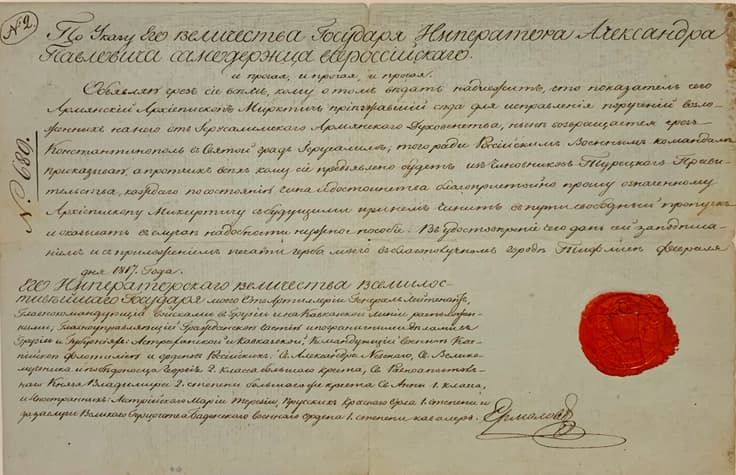 № 2.
По Указу Его величества Государя Императора Александра
Павловича самодержца всероссійскаго.
и прочая, и прочая, и прочая.
Объявляю чрез сіе всем, кому о том ведать надлежит, что показатель сего
Армянскій Архіепископъ Мкртичъ пріезжавшій сюда для исправленія порученій возло-
женныхъ на него отъ Іерусалимскаго Армянскаго Духовенства, ныне возвращается чрезъ
Константинополь в Святой градъ Іерусалимъ; того ради Россійским Военнымъ командамъ
приказываю, а протчихъ всехъ кому сіе предъявлено будетъ изъ Чиновников Турецкаго Прави-
тельства, каждаго по состоянію чина и достоинства благопріятно прошу означенному
Архіепископу Мкиртичу с будущими при нем чинить в пути свободный пропускъ
и оказывать в случаи надобности нужное пособіе. Въ удостоверение чего данъ сей за подписа-
ніемъ и с приложеніемъ печати герба моего в благополучномъ городе Тифлисе февраля
дня 1817. Года.
№. 689.
Его Императорскаго величества Всемилос-
тивейшаго Государя моего Отъ Артиллеріи Генералъ Лейтенантъ,
Главнокомандующій войсками в Грузіи и на Кавказской линіи расположен-
ными, Главноуправляющій Гражданскою частію и пограничными делами в
Грузіи и Губерніяхъ: Астраханской и Кавказской; Командующій военною Кас-
пійскою флотиліею и орденовъ Россійскихъ: Св. Александра Невскаго, Св. Велико-
мученика и победоносца Георгія 2 класса большаго креста, Св. Равноапостоль-
наго Князя Владимира 2. степени большаго креста Св. Анны 1. класса,
и иностранныхъ: Австрійскаго Маріи Терезіи, Прусскихъ Краснаго Орла 1. степени и
за заслуги Великаго Герцогства Баденскаго военнаго ордена 1. степени кавалеръ.
Ермоловъ